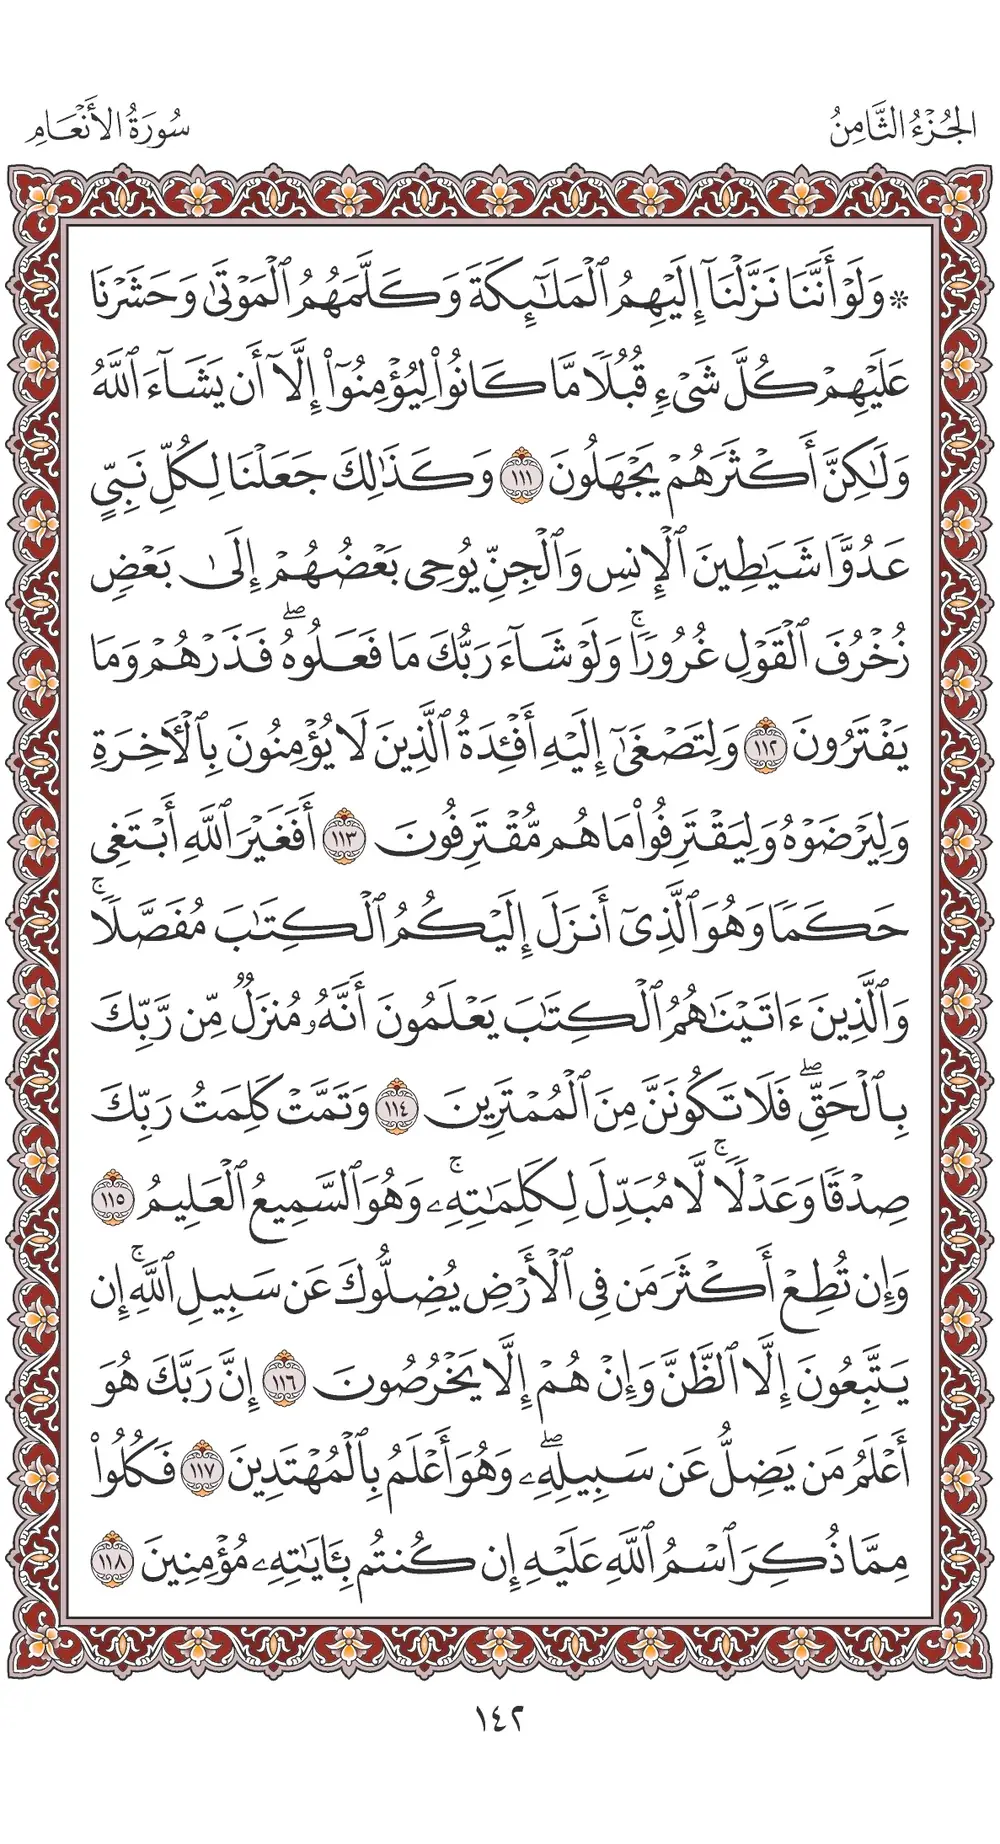 الجُزْءُ الثَّامِنُ
سُورَةُ الأَنْعَامِ
۞ وَلَوْ أَنَّنَا نَزَّلْنَآ إِلَيْهِمُ ٱلْمَلَٰٓئِكَةَ وَكَلَّمَهُمُ ٱلْمَوْتَىٰ وَحَشَرْنَا
عَلَيْهِمْ كُلَّ شَىْءٍ قُبُلًا مَّا كَانُوا۟ لِيُؤْمِنُوٓا۟ إِلَّآ أَن يَشَآءَ ٱللَّهُ
وَلَٰكِنَّ أَكْثَرَهُمْ يَجْهَلُونَ ١١١ وَكَذَٰلِكَ جَعَلْنَا لِكُلِّ نَبِىٍّ
عَدُوًّا شَيَٰطِينَ ٱلْإِنسِ وَٱلْجِنِّ يُوحِى بَعْضُهُمْ إِلَىٰ بَعْضٍ
زُخْرُفَ ٱلْقَوْلِ غُرُورًا ۚ وَلَوْ شَآءَ رَبُّكَ مَا فَعَلُوهُ ۖ فَذَرْهُمْ وَمَا
يَفْتَرُونَ ١١٢ وَلِتَصْغَىٰٓ إِلَيْهِ أَفْـِٔدَةُ ٱلَّذِينَ لَا يُؤْمِنُونَ بِٱلْـَٔاخِرَةِ
وَلِيَرْضَوْهُ وَلِيَقْتَرِفُوا۟ مَا هُم مُّقْتَرِفُونَ ١١٣ أَفَغَيْرَ ٱللَّهِ أَبْتَغِى
حَكَمًا وَهُوَ ٱلَّذِىٓ أَنزَلَ إِلَيْكُمُ ٱلْكِتَٰبَ مُفَصَّلًا ۚ
وَٱلَّذِينَ ءَاتَيْنَٰهُمُ ٱلْكِتَٰبَ يَعْلَمُونَ أَنَّهُۥ مُنَزَّلٌ مِّن رَّبِّكَ
بِٱلْحَقِّ ۖ فَلَا تَكُونَنَّ مِنَ ٱلْمُمْتَرِينَ ١١٤ وَتَمَّتْ كَلِمَتُ رَبِّكَ
صِدْقًا وَعَدْلًا ۚ لَّا مُبَدِّلَ لِكَلِمَٰتِهِۦ ۚ وَهُوَ ٱلسَّمِيعُ ٱلْعَلِيمُ ١١٥
وَإِن تُطِعْ أَكْثَرَ مَن فِى ٱلْأَرْضِ يُضِلُّوكَ عَن سَبِيلِ ٱللَّهِ ۚ إِن
يَتَّبِعُونَ إِلَّا ٱلظَّنَّ وَإِنْ هُمْ إِلَّا يَخْرُصُونَ ١١٦ إِنَّ رَبَّكَ هُوَ
أَعْلَمُ مَن يَضِلُّ عَن سَبِيلِهِۦ ۖ وَهُوَ أَعْلَمُ بِٱلْمُهْتَدِينَ ١١٧ فَكُلُوا۟
مِمَّا ذُكِرَ ٱسْمُ ٱللَّهِ عَلَيْهِ إِن كُنتُم بِـَٔايَٰتِهِۦ مُؤْمِنِينَ ١١٨
١٤٢